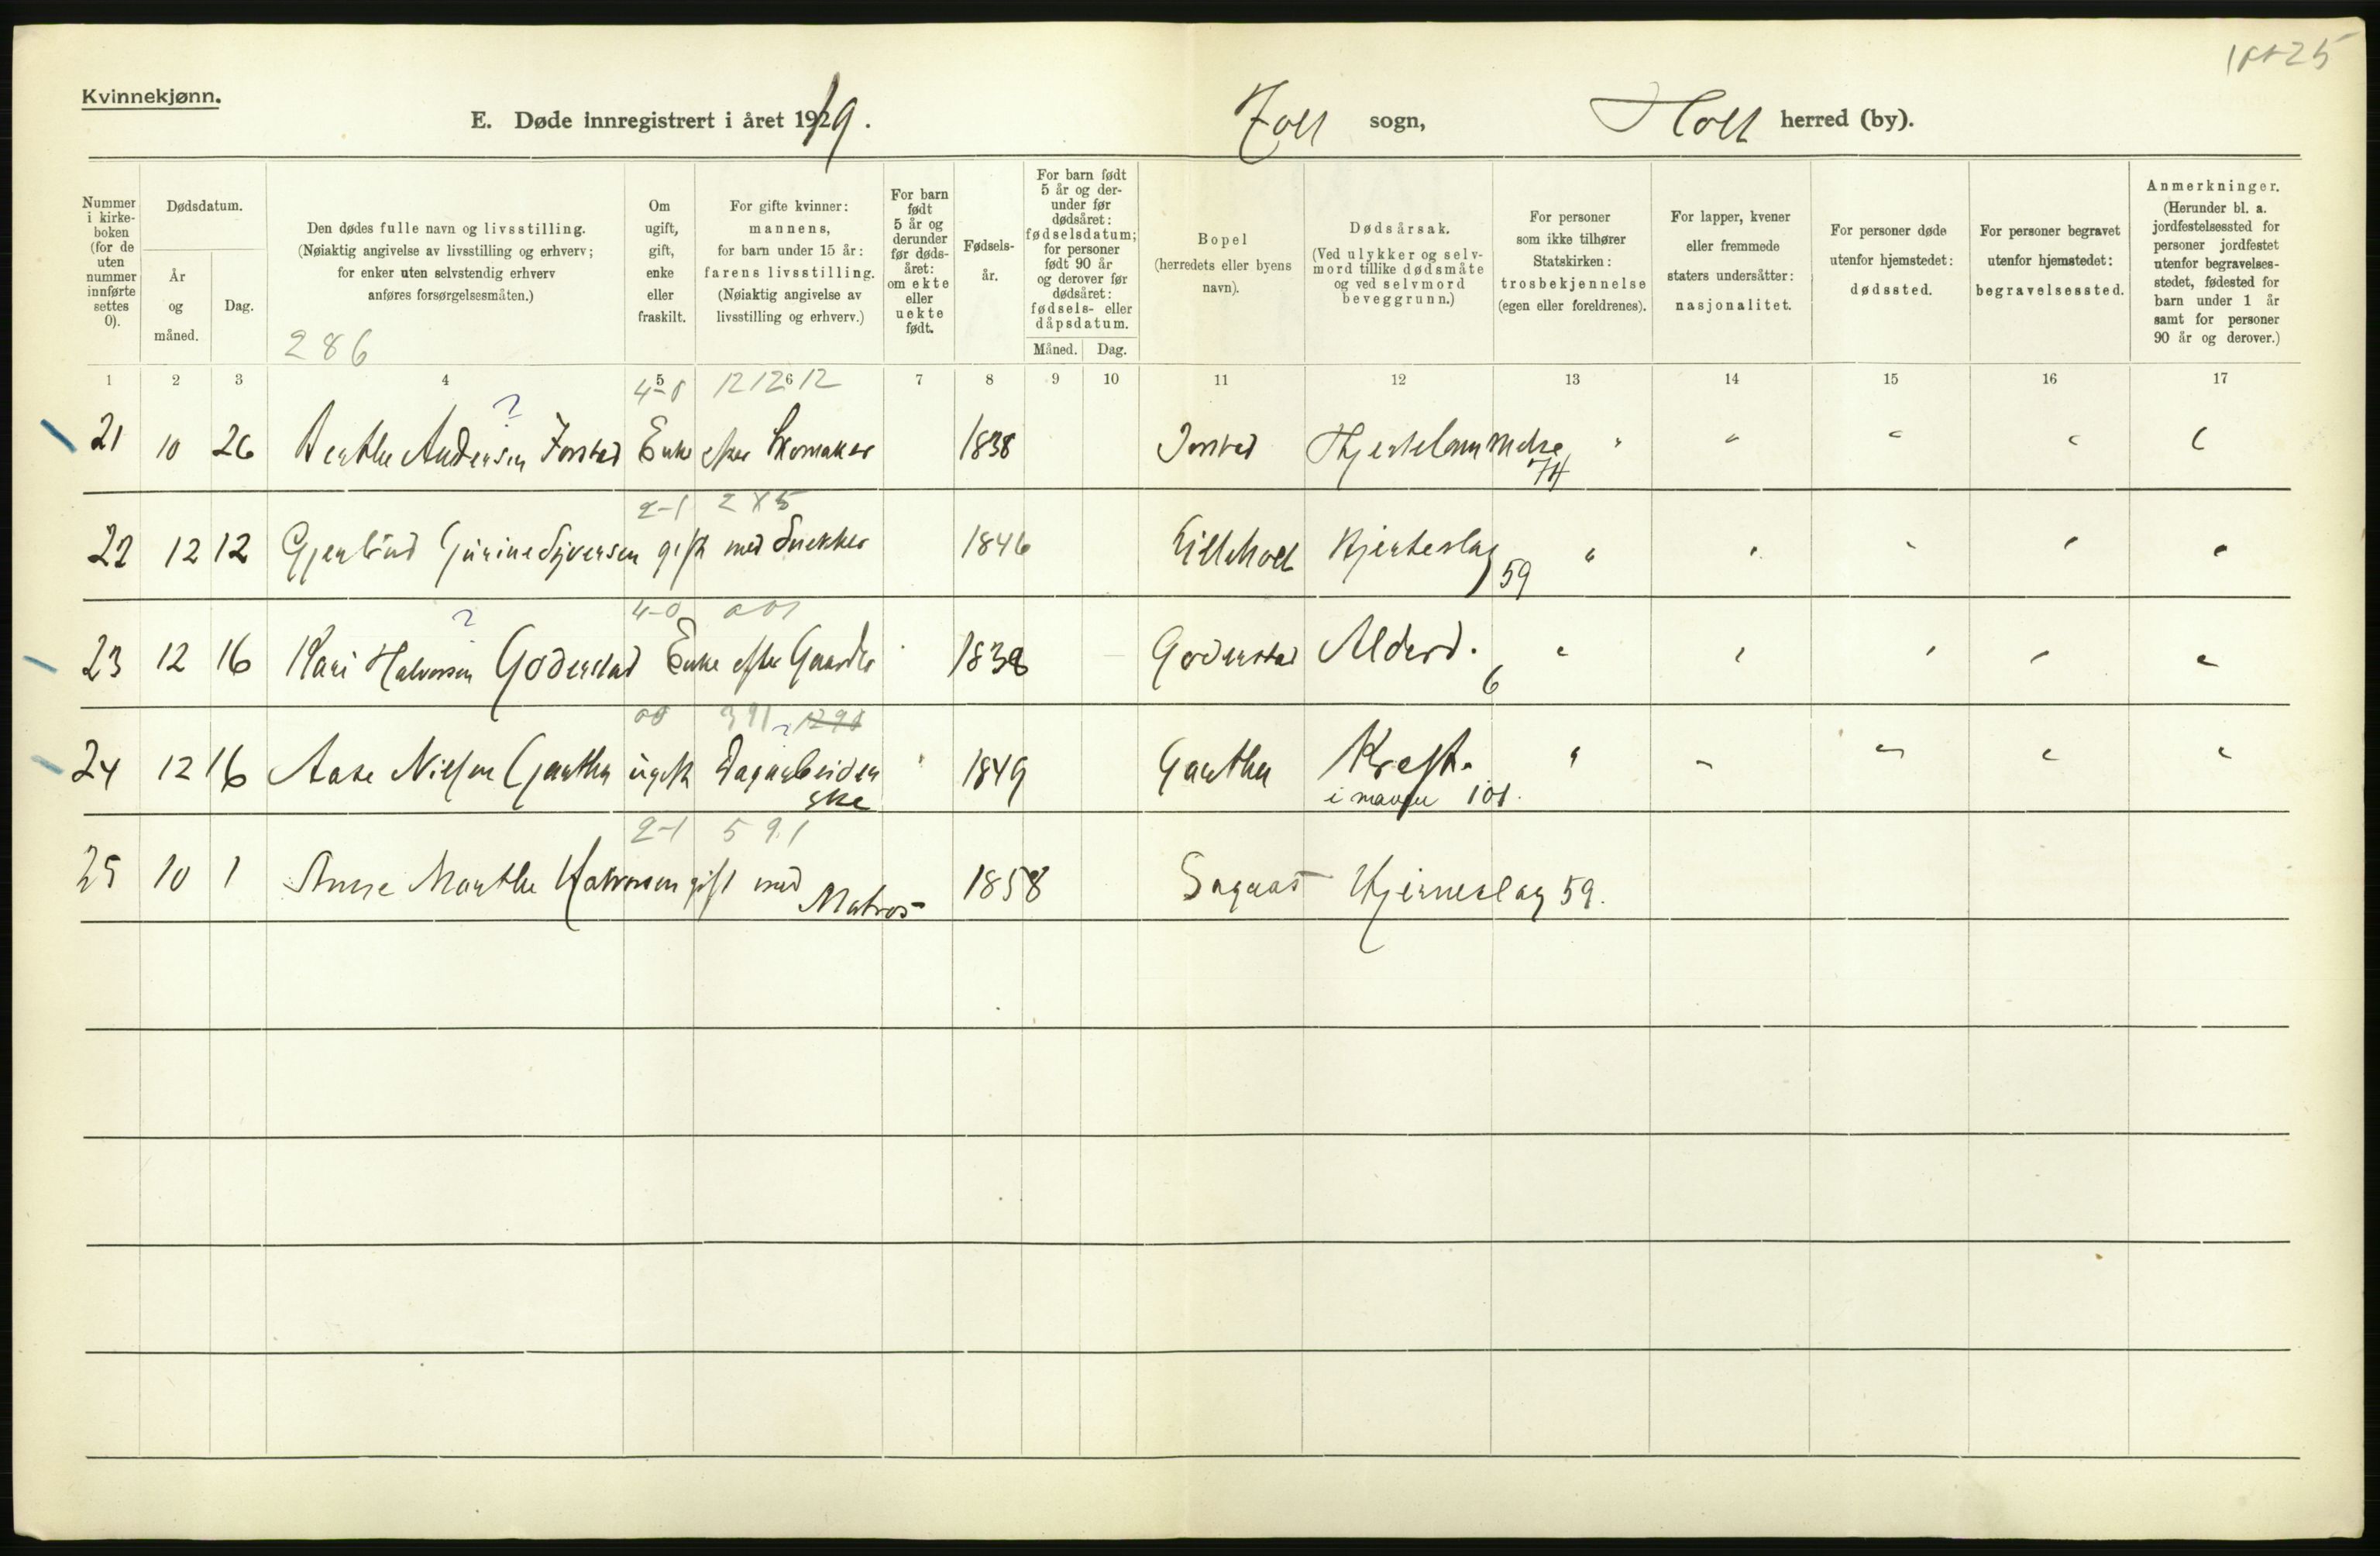 1825
Kvinnekjønn.
E. Døde innregistrert i året 1919. Holt sogn, Holt herred (by).
Nummer i kirke-boken (for de uten nummer innførte settes 0).
Dødsdatum.
År og måned.
Dag.
Den dødes fulle navn og livsstilling.
(Nøiaktig angivelse av livsstilling og erhverv;
for enker uten selvstendig erhverv
anføres forsørgelsesmåten.)
286
Om ugift, gift, enke eller fraskilt.
For gifte kvinner:
mannens,
for barn under 15 år:
farens livsstilling.
(Nøiaktig angivelse av
livsstilling og erhverv.)
For barn født 5 år og derunder før døds-året: om ekte eller uekte født.
Fødsels-år.
For barn født 5 år og der-under før dødsåret: fødselsdatum; for personer født 90 år og derover før dødsåret: fødsels- eller dåpsdatum.
Måned. Dag.
Bopel
(herredets eller byens
navn).
Dødsårsak.
(Ved ulykker og selv-
mord tillike dødsmåte
og ved selvmord
beveggrunn.)
For personer
som ikke tilhører
Statskirken:
trosbekjennelse
(egen eller foreldrenes).
For lapper, kvener
eller fremmede
staters undersåtter:
nasjonalitet.
For personer døde
utenfor hjemstedet:
dødssted.
For personer begravet
utenfor hjemstedet:
begravelsessted.
Anmerkninger.
(Herunder bl. a.
jordfestelsessted for
personer jordfestet
utenfor begravelses-
stedet, fødested for
barn under 1 år
samt for personer
90 år og derover.)
1 2 3 4 5 6 7 8 9 10 11 12 13 14 15 16 17
4-0 121212
?
21 10 26 Berthe Andersen Jorstad Enke efter Skomaker 1838 Jorstad Hjertelammelse " " " " "
74
2-1 2X5
22 12 12 Gjerlaud Gurine Syversen gift med Snekker 1846 Lilleholt Hjerteslag 59 " " " " "
4-0 001
?
23 12 16 Kari Halvorsen Goderstad Enke efter Gaardbr 1838 Goderstad Alderd. 6 " " " " "
00 391 1291
24 12 16 Aase Nilsen Gjartha ugift Dagarbeider " 1849 Gjartha Kreft. " " " " "
ske i maven 101.
2-1 591
25 10 1 Anne Marthe Halvorsen gift med Matros 1858 Sagaas Hjerneslag 59.